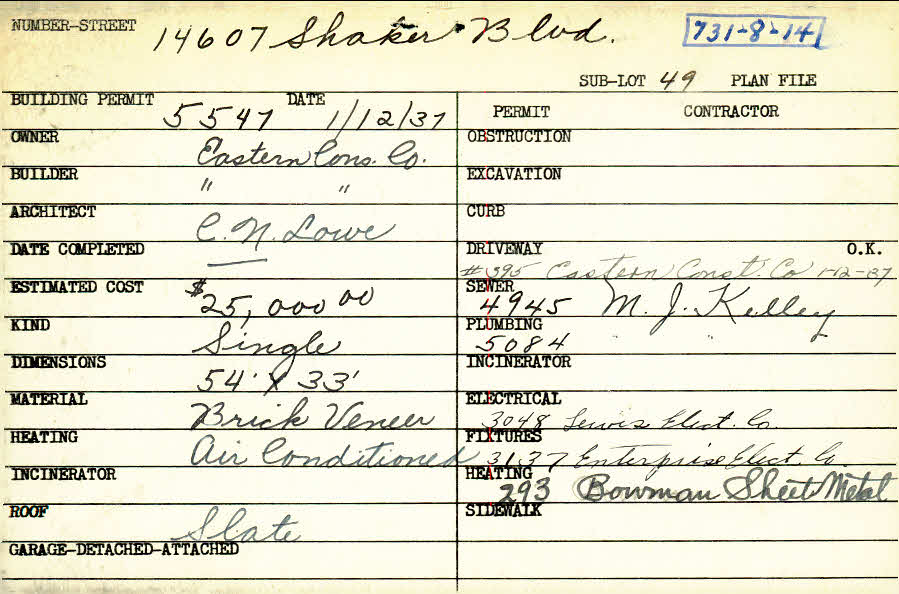 NUMBER-STREET 14607 Shaker Blvd. 731-8-14
SUB-LOT 49 PLAN FILE
BUILDING PERMIT 5547 DATE 1/12/37
PERMIT CONTRACTOR
OWNER Eastern Cons. Co.
OBSTRUCTION
BUILDER " "
EXCAVATION
ARCHITECT C. N. Lowe
CURB
DATE COMPLETED —
DRIVEWAY O.K.
#395 Eastern Const. Co 1-12-37
ESTIMATED COST $25,000 00
SEWER
4945 M. J. Kelley
KIND Single
PLUMBING
5084 " "
DIMENSIONS 54' X 33'
INCINERATOR
MATERIAL Brick Veneer
ELECTRICAL
3048 Lewis Elect. Co.
HEATING Air Conditioned
FIXTURES
3137 Enterprise Elect. Co
INCINERATOR
HEATING
293 Bowman Sheet Metal
ROOF Slate
SIDEWALK
GARAGE-DETACHED-ATTACHED